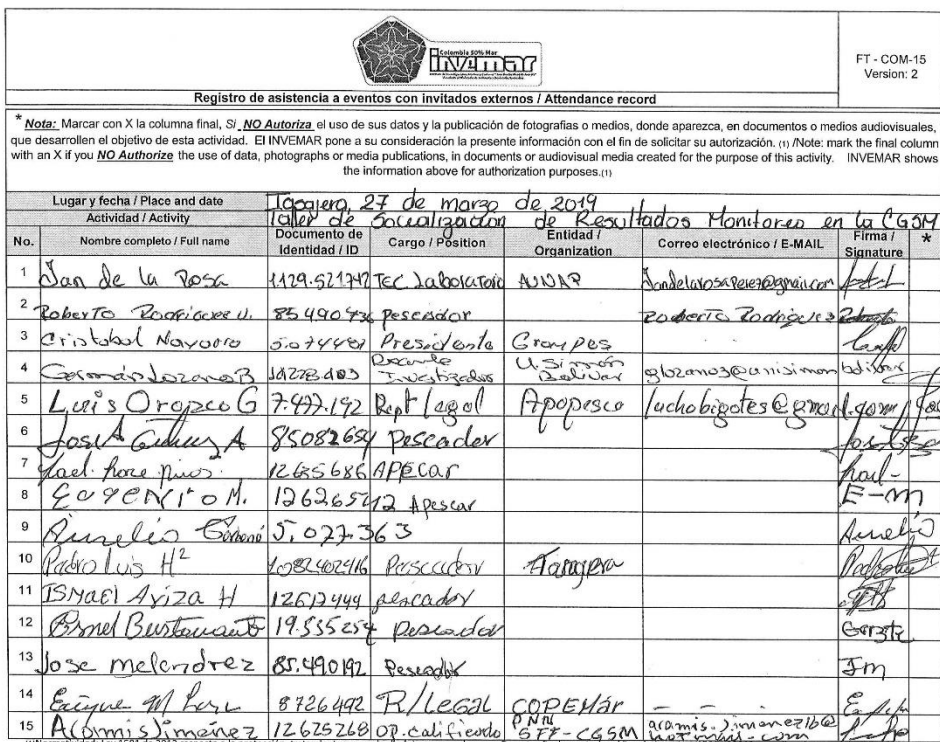 Colombia 50% Mar
invemar
FT - COM-15
Version: 2
Registro de asistencia a eventos con invitados externos / Attendance record
* Nota: Marcar con X la columna final, Si NO Autoriza el uso de sus datos y la publicación de fotografías o medios, donde aparezca, en documentos o medios audiovisuales,
que desarrollen el objetivo de esta actividad. El INVEMAR pone a su consideración la presente información con el fin de solicitar su autorización. (1) /Note: mark the final column
with an X if you NO Authorize the use of data, photographs or media publications, in documents or audiovisual media created for the purpose of this activity. INVEMAR shows
the information above for authorization purposes.(1)
Lugar y fecha / Place and date Tasajera, 27 de marzo de 2019
Actividad / Activity Taller de Socialización de Resultados Monitoreo en la CGSM
No. Nombre completo / Full name Documento de Identidad / ID Cargo / Position Entidad / Organization Correo electrónico / E-MAIL Firma / Signature *
1 Jan de la Rosa 1.129.521742 TEC Laboratorio AUNAP Jandelarosaperez@gmail.com
2 Roberto Rodriguez U. 85490736 pescador Roberto Rodriguez
3 Cristobal Navarro 5.074481 Presidente Grampes
4 Germán Lozano B Docente Investigador U. Simón Bolivar
5 Luis Orozco G 7.497.192 Rept legal Apopesca luchobigotes@gmail.com
6 José A A 85082654 Pescador
7 12635686 APECAR
8 M. Apescar E-M
9 Aurelio 5.027.363 Aurelio
10 Pedro Luis H² 1082402916 Pescador Tasajera
11 ISMael Ariza H 12617444 pescador
12 Osnel Bustamante 19.535254 pescador
13 Jose melendrez 85.490192 Pescador Jm
14 Enrique M 8726492 R/Legal COPEMAR - -
15 A(ramis) jiménez 12625268 op. calificado PNN SFF-CGSM aramis-jimenez16@hotmail.com